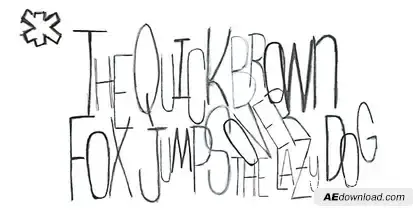 * THE QUICK BROWN
FOX JUMPS OVER THE LAZY DOG
AEdownload.com